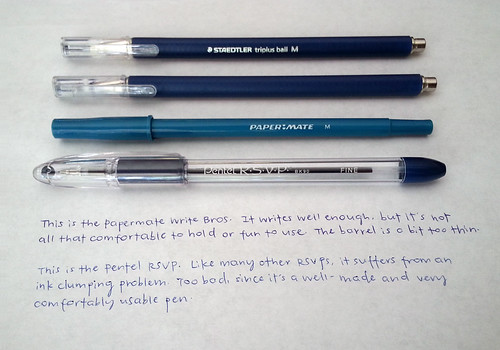 STAEDTLER triplus ball M
PAPER:MATE M
Pentel R.S.V.P. BK90 FINE
This is the papermate Write Bros. It writes well enough, but it's not
all that comfortable to hold or fun to use. The barrel is a bit too thin.
This is the Pentel RSVP. Like many other RSVPs, it suffers from an
ink clumping problem. Too bad, since it's a well-made and very
comfortably usable pen.